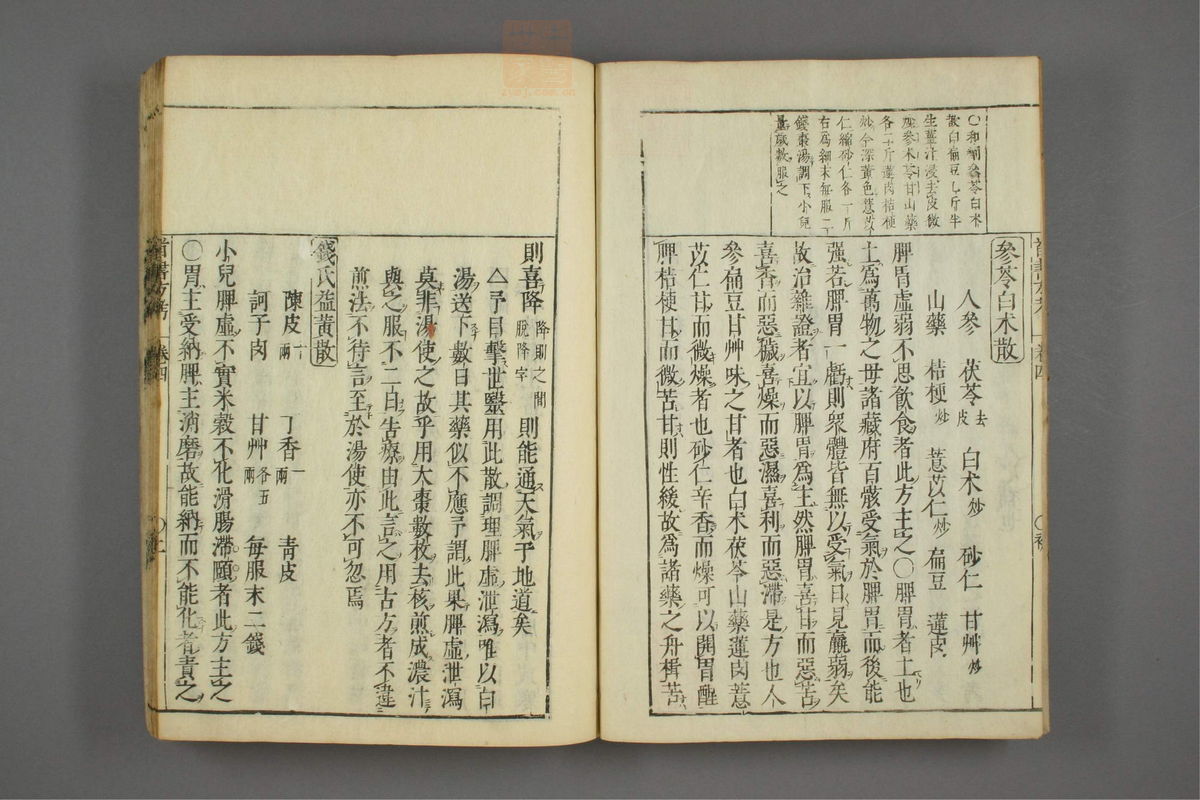 〇和劑參苓白朮
散白扁豆乚斤半
生薑汁浸去皮微
炒參朮苓甘山藥
各二斤蓮肉桔梗
炒令深黃色薏苡
仁縮砂仁各一斤
右爲細末每服二
錢棗湯調下小兒
量歲數服之
參苓白朮散
人參 茯苓去皮 白朮炒 砂仁 甘艸炒
山藥 桔梗炒 薏苡仁炒 扁豆 蓮肉
脾胃虛弱不思飲食者此方主之〇脾胃者土也
土爲萬物之毋諸藏府百骸受氣於脾胃而後能
強若脾胃一虧則衆體皆無以受氣日見羸弱矣
故治雜證者宜以脾胃爲主然脾胃喜甘而惡苦
喜香而惡穢喜燥而惡濕喜利而惡滯是方也人
參扁豆甘艸味之甘者也白朮茯苓山藥蓮肉薏
苡仁甘而微燥者也砂仁辛香而燥可以開胃醒
脾桔梗甘而微苦甘則性緩故爲諸藥之舟楫苦
則喜降降則之間脫降字則能通天氣于地道矣
△予目擊世醫用此散調理脾虛泄瀉唯以白
湯送下數日其藥似不應予謂此果脾虛泄瀉
莫非湯使之故乎用大棗數枚去核煎成濃汁
與之服不二日告療由此言之用古方者不違
煎法不待言至於湯使亦不可忽焉
錢氏益黃散
陳皮一兩 丁香一兩 靑皮
訶子肉 甘艸各五兩 每服末二錢
小兒脾虛不實米穀不化滑腸滯頤者此方主之
〇胃主受納脾主消磨故能納而不能化者責之
醫書方考 卷四